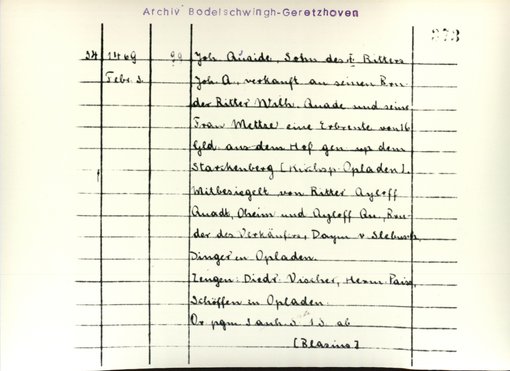 Archiv Bodelschwingh-Geretzhoven
373
34 1469 99 Joh. Quaide, Sohn des † Ritters
Febr. 3. Joh. Q., verkauft an seinen Bru-
der Ritter Wilh. Quade und seine
Frau Mettse eine Erbrente von 16
Gld. aus dem Hof gen. up dem
Starckenberg [Kirchsp. Opladen].
Mitbesiegelt von Ritter Ayloff
Quadt, Oheim und Ayloff Qu., Bru-
der des Verkäufers, Daym v.
Dinger in Opladen.
Zeugen: Diedr. Vischer, Herm.
Schöffen in Opladen.
Or. pgm. 3 anh. S. 1. 3. ab
[Blasius]